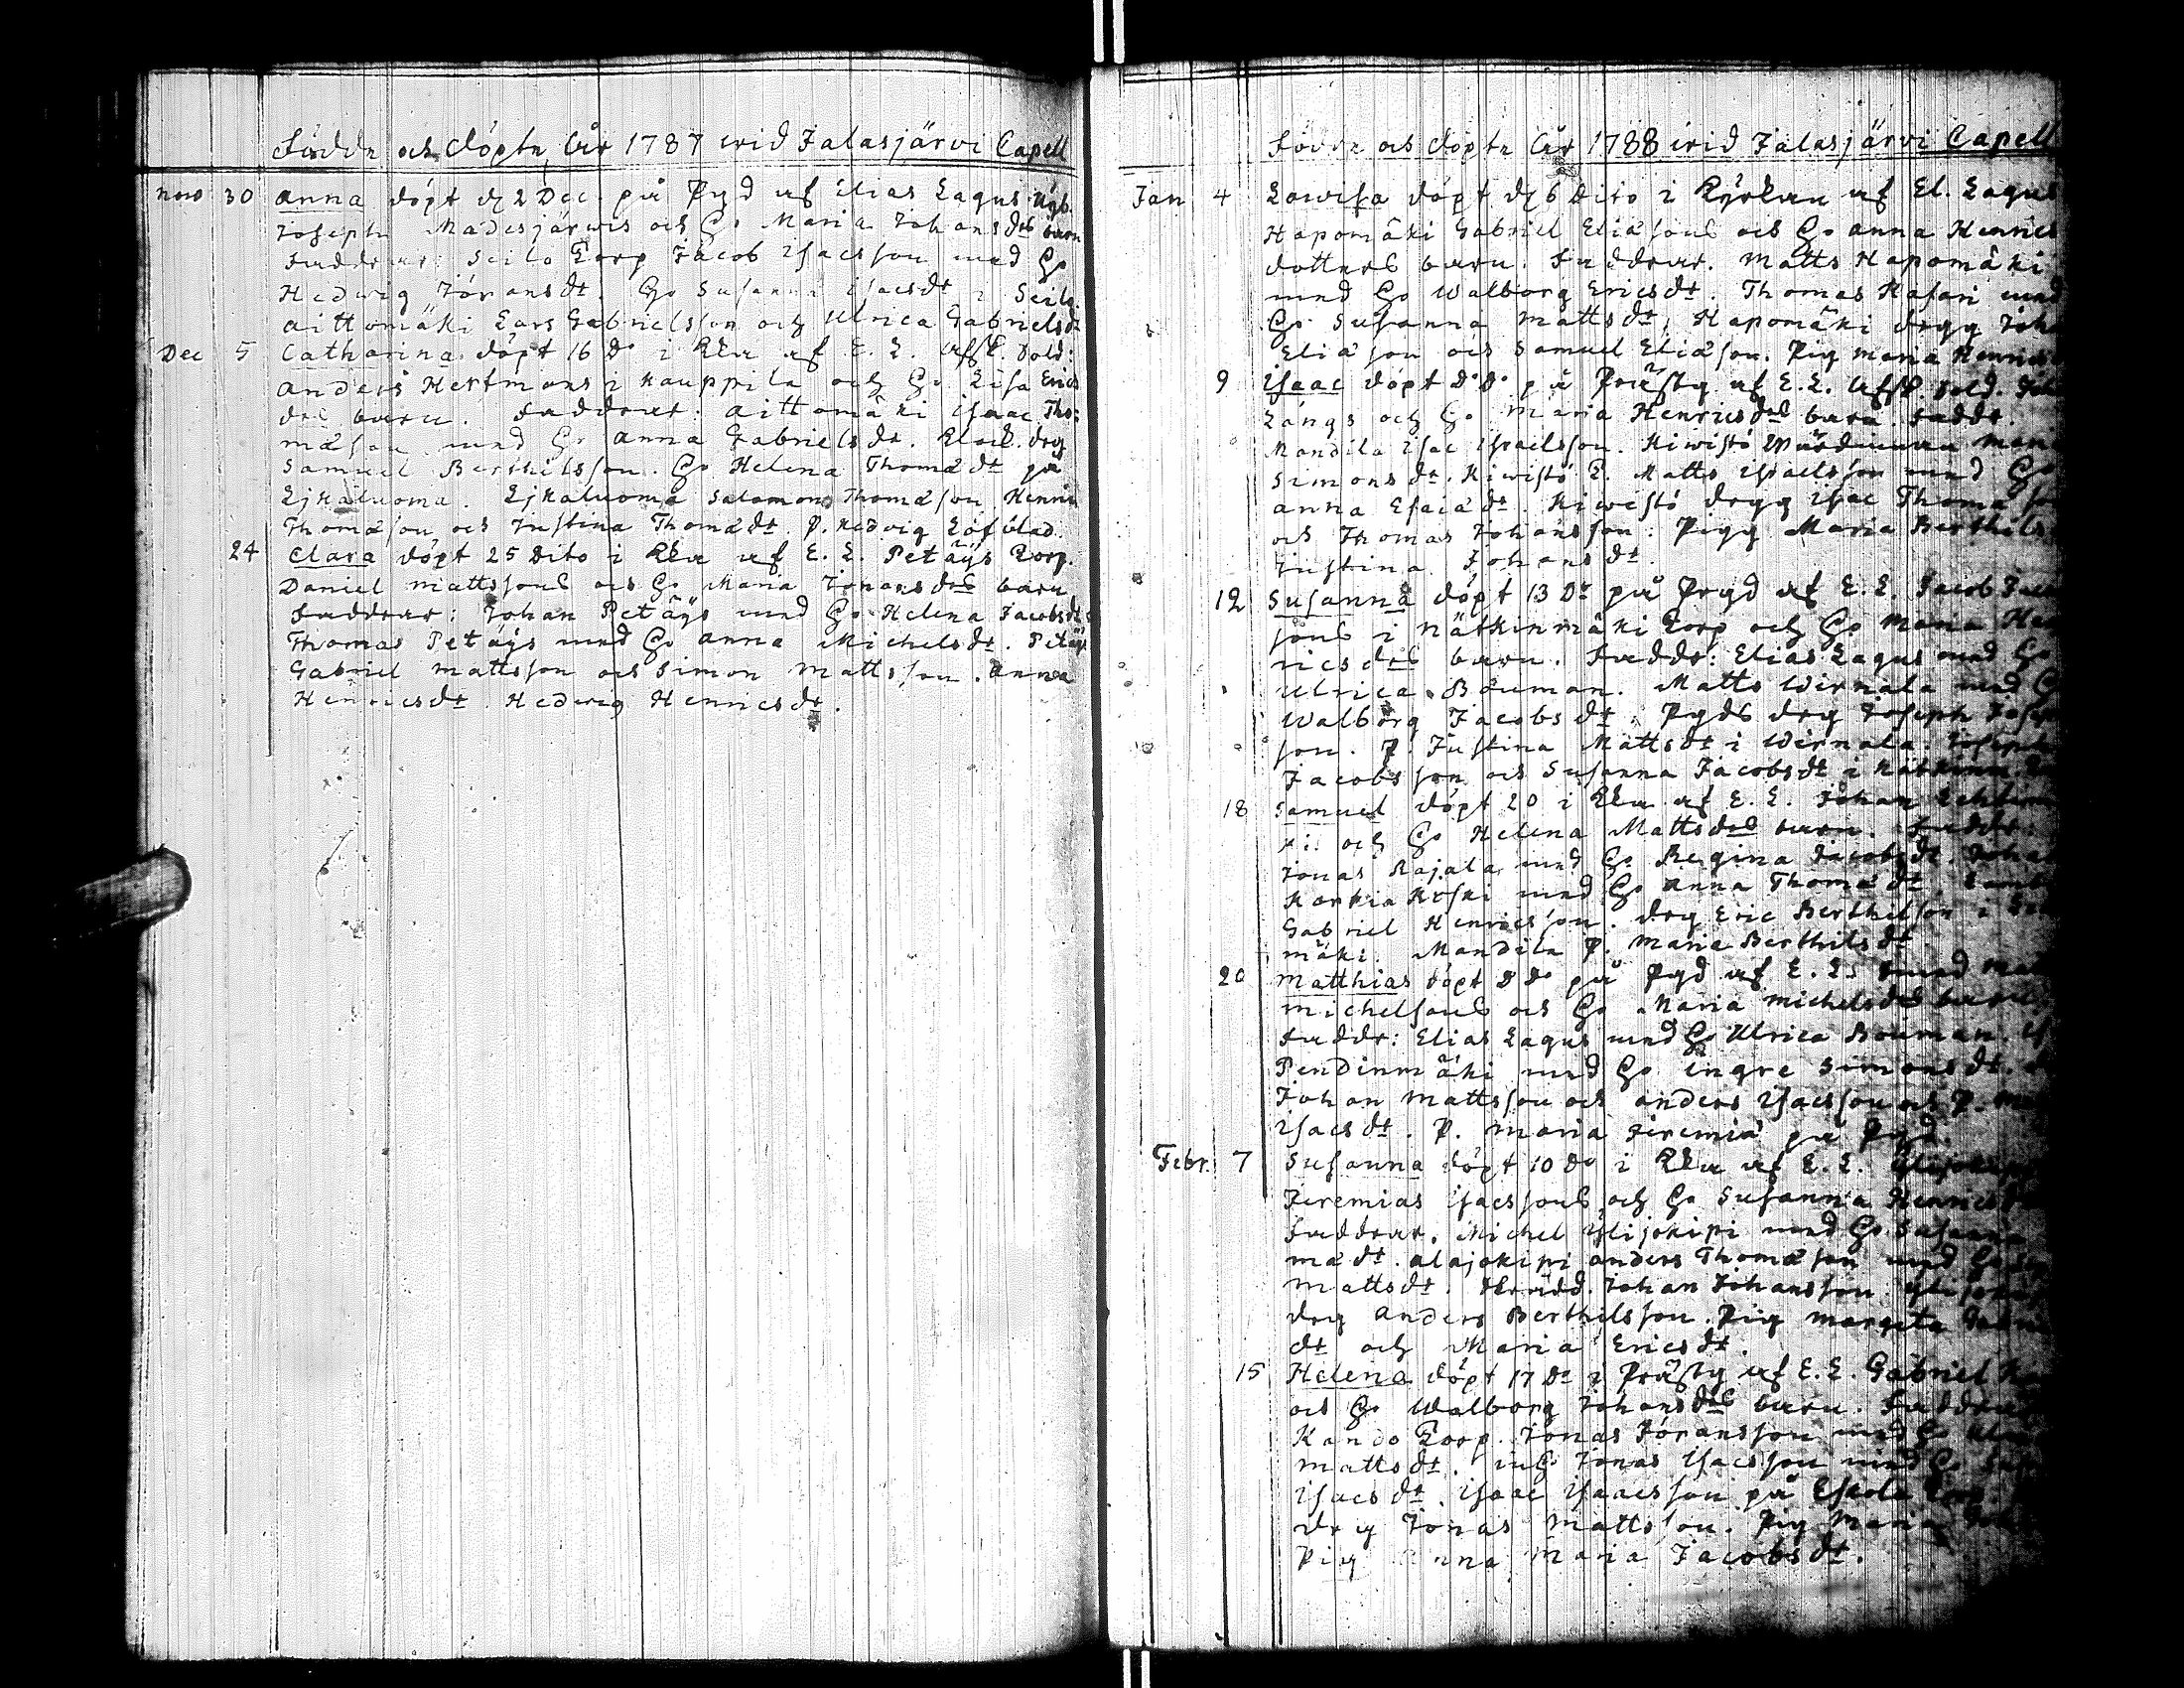 Födde och döpte åhr 1787 wid Jalasjärvi Capell
Nov 30 Anna döpt d 2 Dec. på Pgd af Elias Lagus Ngb.
Joseph Madesjärwis och Ho Maria Johansdrs barn
Faddrar: Seilo Torp Jacob Isacsson med Ho
Hedwig Jöransdt. Ho Susanna Isacsdt i Seilo.
Aittomäki Lars Gabrielsson och Ulrica Gabrielsdt
Dec 5 Catharina döpt 16 Do i Kku af E. L. Afsk. Sold:
Anders Hertmans i Kauppila och Ho Lisa Erics
drs barn. Faddrar: Aittomäki Isaac Tho:
mäson med Ho Anna Gabrielsdt. drg
Samuel Berthilsson. Ho Helena Thomädt på
Ljkaluoma. Ljkaluoma Salomon Thomäson Henric
Thomäson och Justina Thomädt. P. Hedvig Löfblad.
24 Clara döpt 25 Dito i Kku af E. L. Petäys Torp.
Daniel Mattssons och Ho Maria Jonansdrs barn
Faddrar: Johan Petäys med Ho Helena Jacobsdt.
Thomas Petäys med Ho Anna Michelsdt. Petäys
Gabriel Mattsson och Simon Mattsson. Anna
Henricsdt. Hedwig Henricsdt.
Födde och döpte åhr 1788 wid Jalasjärvi Capell
Jan 4 Lowisa döpt d 6 Dito i Kyrkan af El. Lagus
Hapomäki Gabriel Eliäsons och Ho Anna Henrics
dotters barn. Faddrar. Matts Hapomäki
med Ho Walborg Ericsdt. Thomas Hasari med
Ho Susanna Mattsdt, Hapomäki drgg Joh
Eliäson och Samuel Eliäson. Pig Maria Henrics
9 Isaac döpt Do Do på Prästg af E. L. Afsk. Sold. Joh
Långs och Ho Maria Henricsdrs barn. Faddr.
Mandila Isac Israelsson. Kiwistö Mari
Simonsdt. Kiwistö B. Matts Israelsson med Ho
Anna Esaiädt. Kiwistö drgg Isac Thomäson
och Thomas Johansson. Pigg Maria Berthils
Justina Johansdt.
12 Susanna döpt 13 Do på Prgd af E. L. Jacob Jaco
sons i Nätkinmäki Torp och Ho Maria Hen
ricsdrs barn. Faddr: Elias Lagus med Ho
Ulrica Bouman. Matts Wirnala med Ho
Walborg Jacobsdt. Pgds drg Joseph Joseph
son. P. Justina Mattsdt i Wirnala. Joseph
Jacobsson och Susanna Jacobsdt i
18 Samuel döpt 20 i Kku af E. L. Johan
ki och Ho Helena Mattsdrs barn. Faddr:
Jonas Rajala med Ho Regina Jacobsdt. Johan
Korkia Koski med Ho Anna Thomädt.
Gabriel Henricsson. drg Eric Berthelson i
mäki. Mandila P. Maria Berthilsdt.
20 Matthias döpt D Do på Pgd af E. L.
Michelsons och Ho Maria Michelsdrs barn
Faddr: Elias Lagus med Ho Ulrica Bouman.
Pendinmäki med Ho Ingre Simonsdt.
Johan Mattsson och Anders Isacsson och P.
Isacsdt. P. Maria Jeremiä på Pgd.
Febr. 7 Susanna döpt 10 Do i Kku af E. L.
Jeremias Isacssons och Ho Susanna Henrics
Faddrar. Michel Ylijokipi med Ho Susanna
mädt. Alajokipi Anders Thomäson med Ho
Mattsdt. Johan Johansson
drg Anders Berthilsson. Pig Margeta
dt och Maria Ericsdt.
15 Helena döpt 17 Do i Prästg af E. L. Gabriel
och Ho Walborg Johansdrs barn. Faddrar
Kando Torp. Jonas Jöransson med Ho
Mattsdt. Jonas Isacsson med Ho
Isacsdt. Isaac Isaacsson på Eskola
drg Jonas Mattsson. Pig Maria
Pig Anna Maria Jacobsdt.